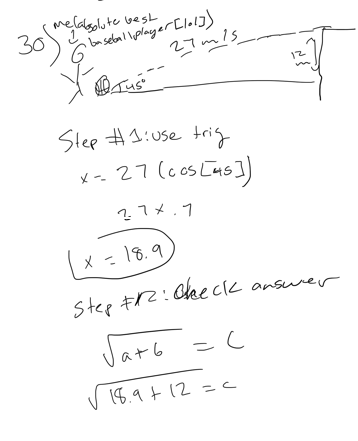 30) me(absolute best
baseball player[lol])
27 m/s
12 m
45°
Step #1: use trig
x = 27 (cos[45])
27 x .7
x = 18.9
Step #2: Check answer
√a+b = C
√18.9+12 = c